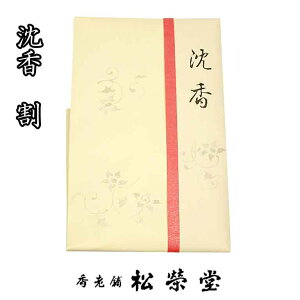 沈香 割
沈香
香老舗 松榮堂